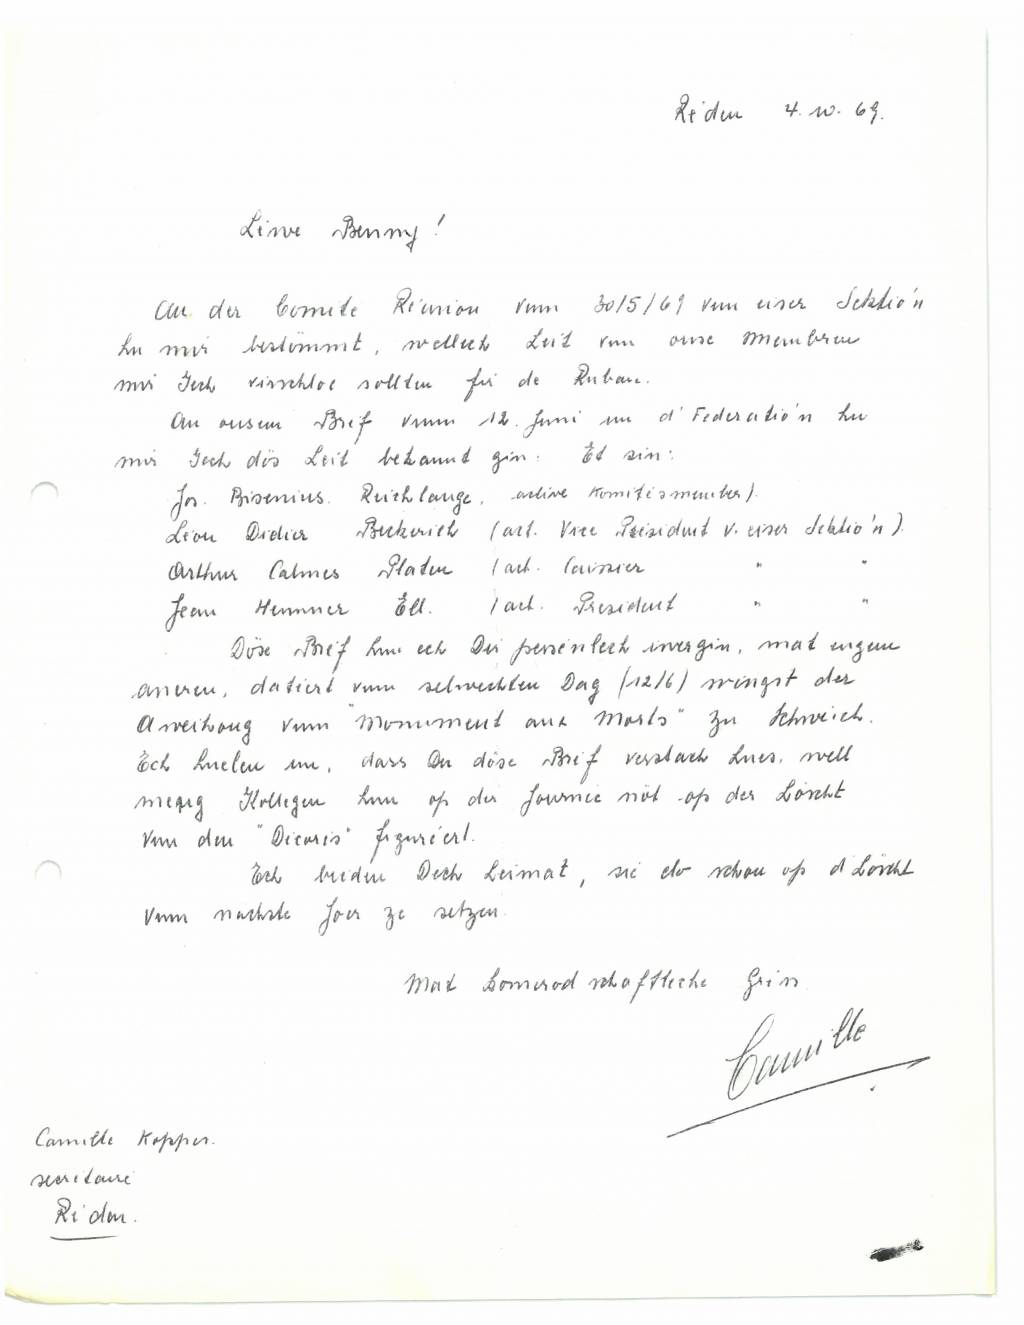 Réiden 4. 10. 69.
Liwe Benny!
An der Comite Réunion vum 30/5/69 vun eiser Sektio'n
hu mir bestömmt, wellech Leit vun onse Membren
mir Iech virschloe sollten fir de Ruban.
An onsem Bréf vum 12. Juni un d'Federatio'n hu
mir Iech dös Leit bekannt gin: Et sin:
Jos. Bisenius. Reichlange, active Komitésmember).
Léon Didier Beckerich (act. Vice Président v. eiser Sektio'n).
Arthur Calmes Platen (act. Caissier " "
Jean Hemmer Ell. (act. President " "
Döse Bréf hun ech Dir persénlech iwergin, mat engem
aneren, datiert vum selwechten Dag (12/6) wingst der
Aweihong vum "Monument aux Morts" zu Schweich.
Ech huelen un, dass Du döse Bréf verstach hues, well
meng Kollegen hun op der Journée nöt op der Löscht
vun den "Dicoris" figuréert.
Ech bieden Dech heimat, sie do schon op d'Löscht
vum nächste Joer ze setzen.
Mat komerodschaftleche Gréiss
Camille
Camille Kopper.
secrétaire
Réiden.